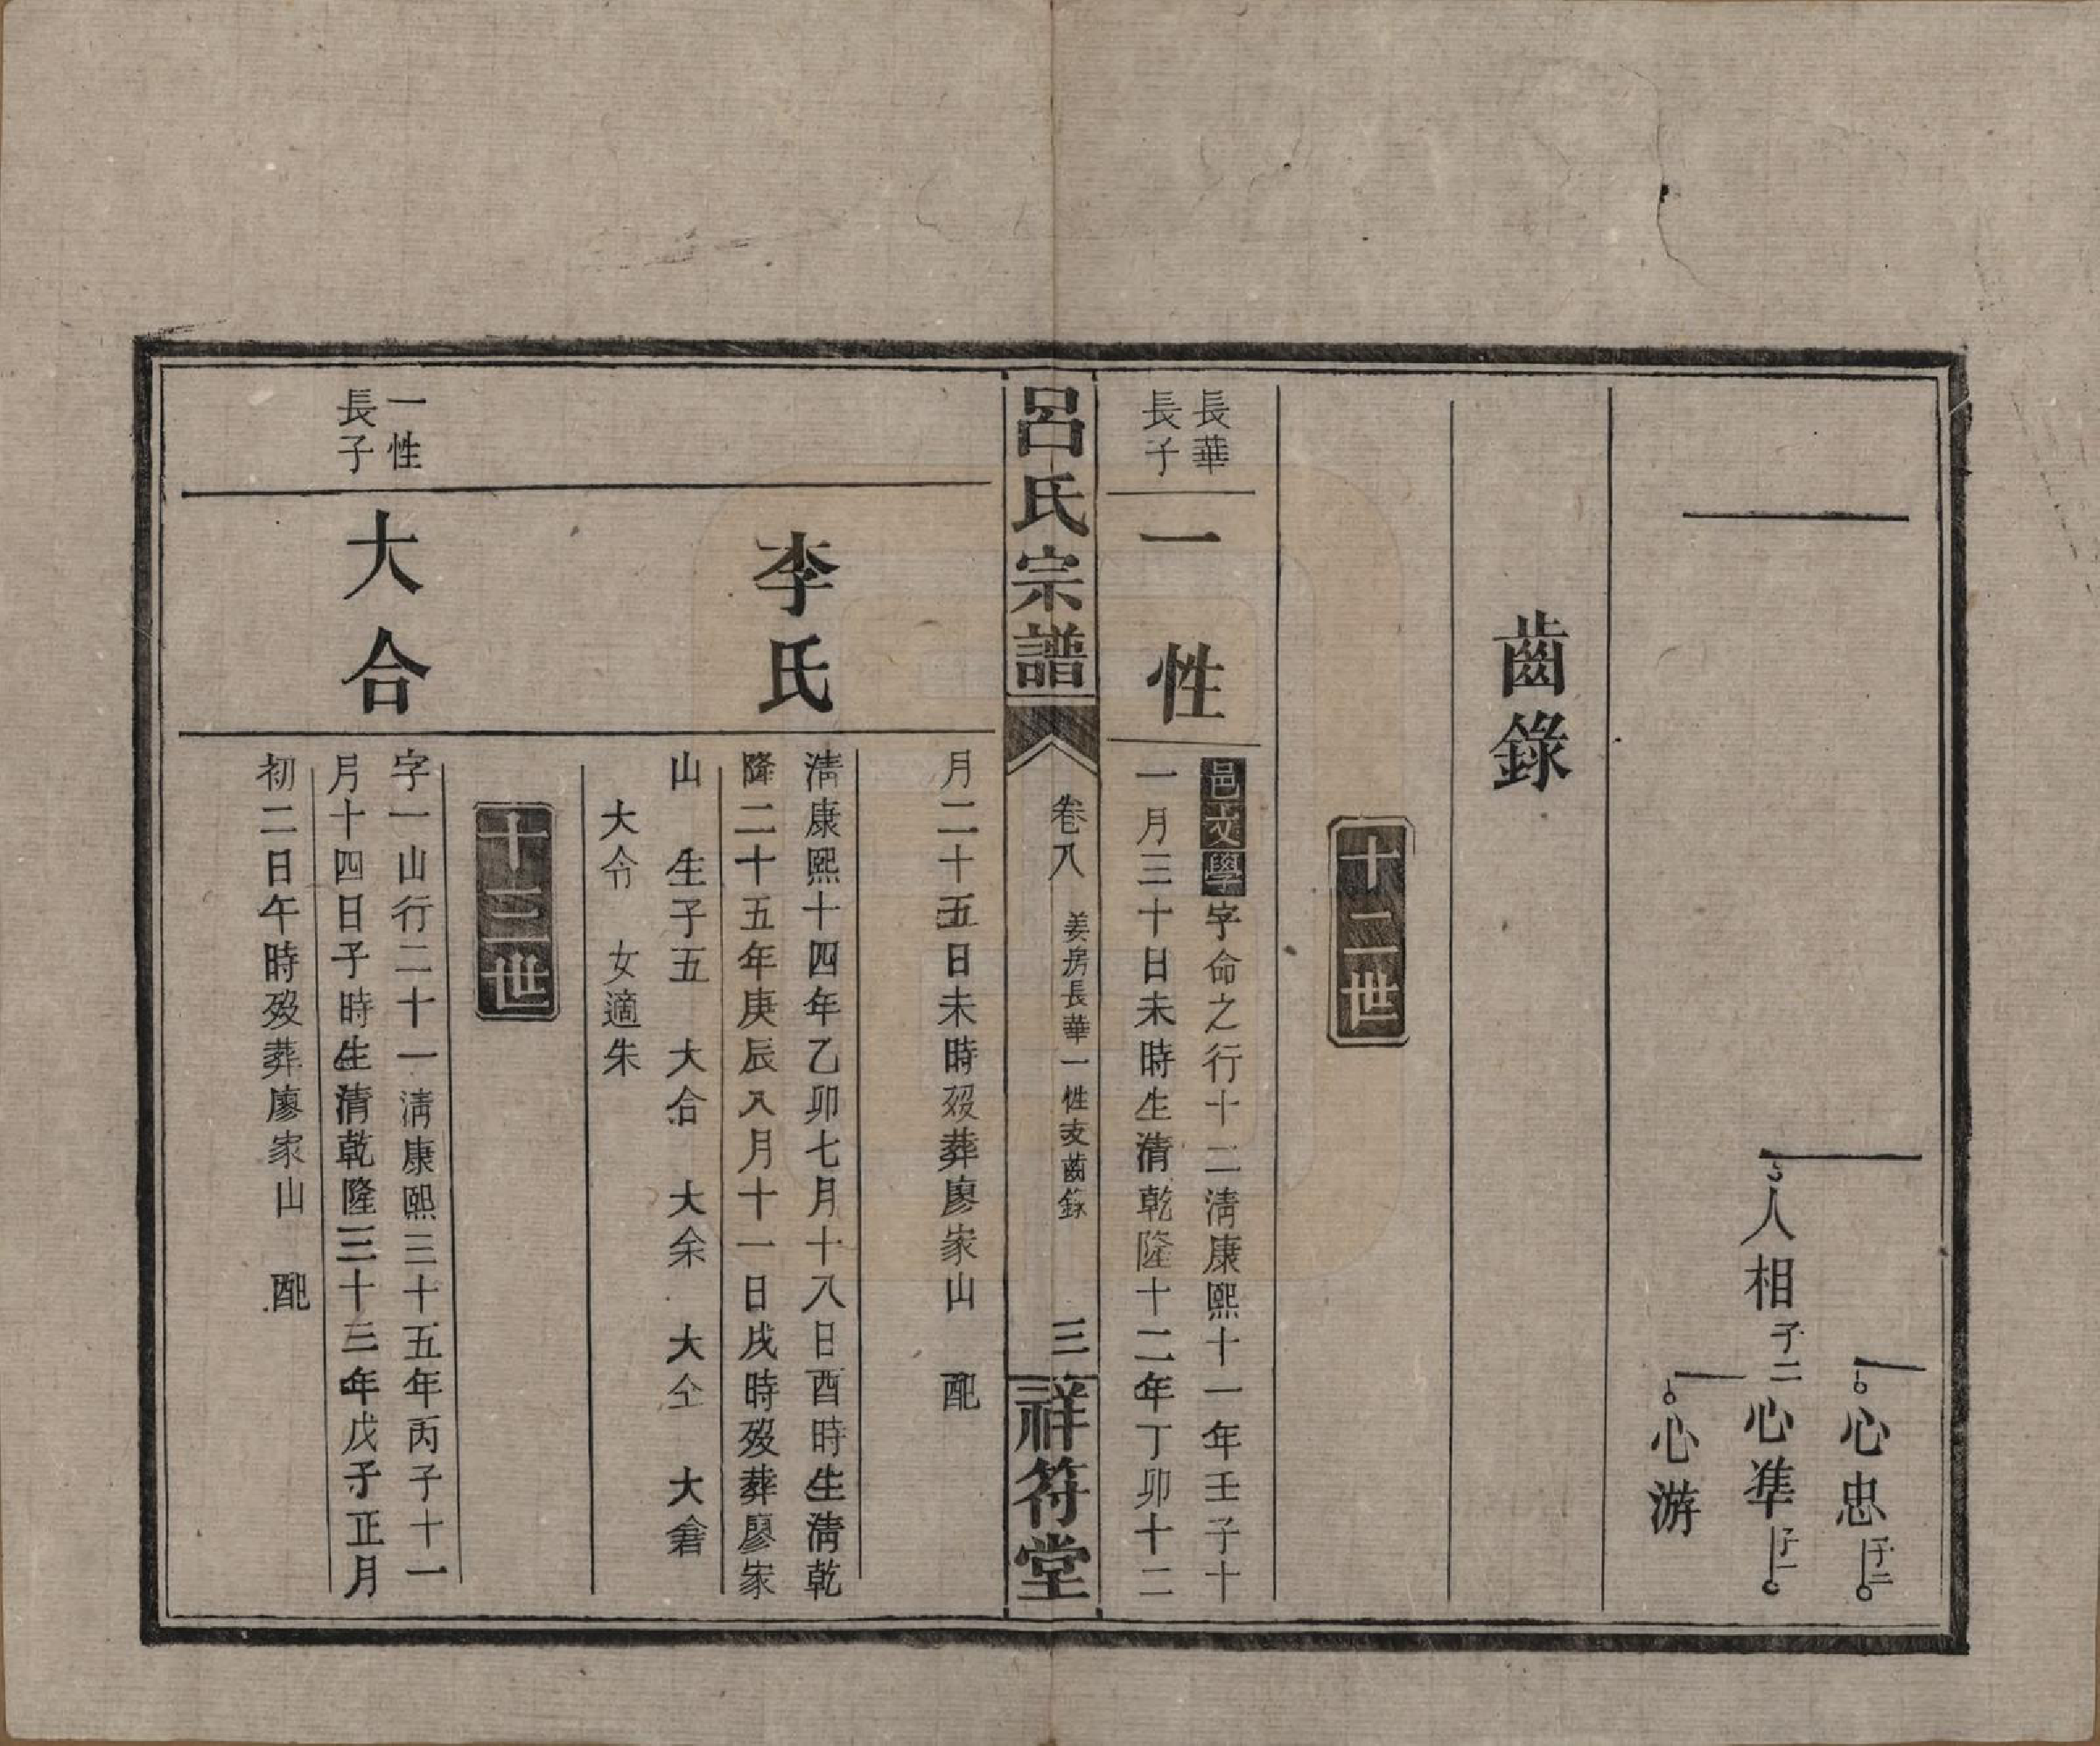 心忠子二
人相子二
心準子一
心游
齒錄
十二世
長華
長子
一性
邑文學字命之行十二清康熙十一年壬子十
一月三十日未時生清乾隆十二年丁卯十二
呂氏宗譜
卷八
姜房長華一性支齒錄
三
祥符堂
月二十五日未時歿葬廖家山 配
李氏
清康熙十四年乙卯七月十八日酉時生清乾
隆二十五年庚辰八月十一日戌時歿葬廖家
山 生子五 大合 大余 大仝 大倉
大令 女適朱
十三世
一性
長子
大合
字一山行二十一清康熙三十五年丙子十一
月十四日子時生清乾隆三十三年戊子正月
初二日午時歿葬廖家山 配